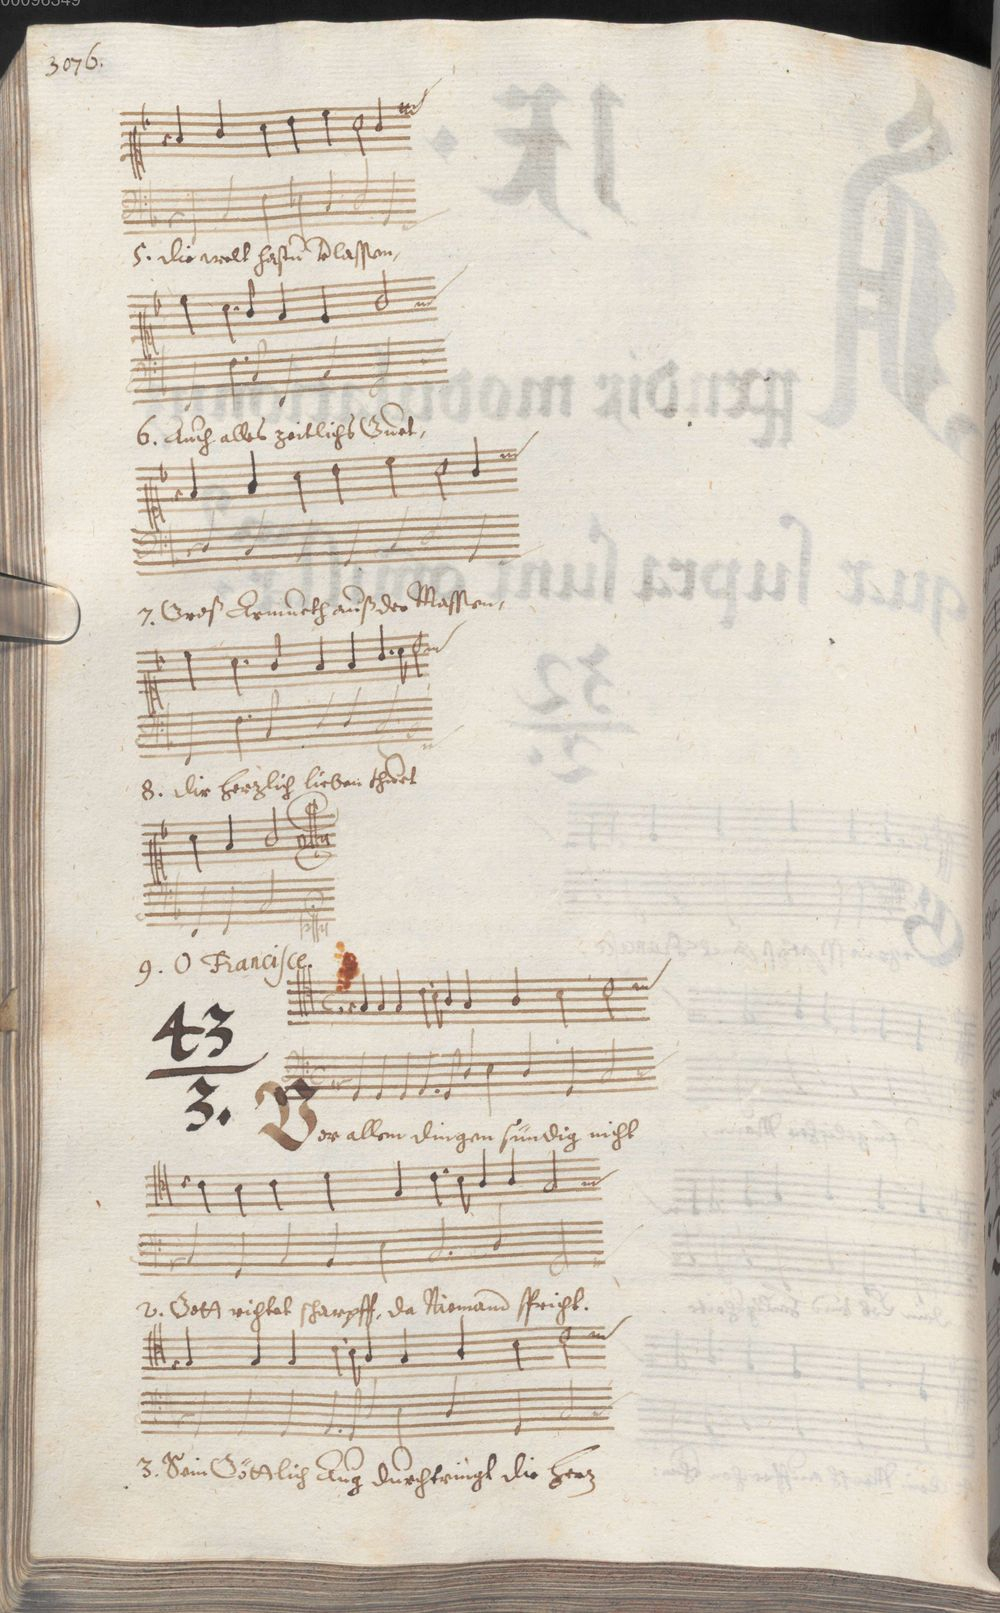 00096349
3076.
5. Die welt hastu v̈lassen,
6. Auch alles zeitlichs Guet,
7. Gros Armueth auß der Massen,
8. Dir herzlich lieben thuet
9. O Francisce.
43
3. Vor allem dingen sündig nicht
2. Gott richtet scharpff, da Niemand spricht.
3. Sein Göttlich Aug durchtringt die herz